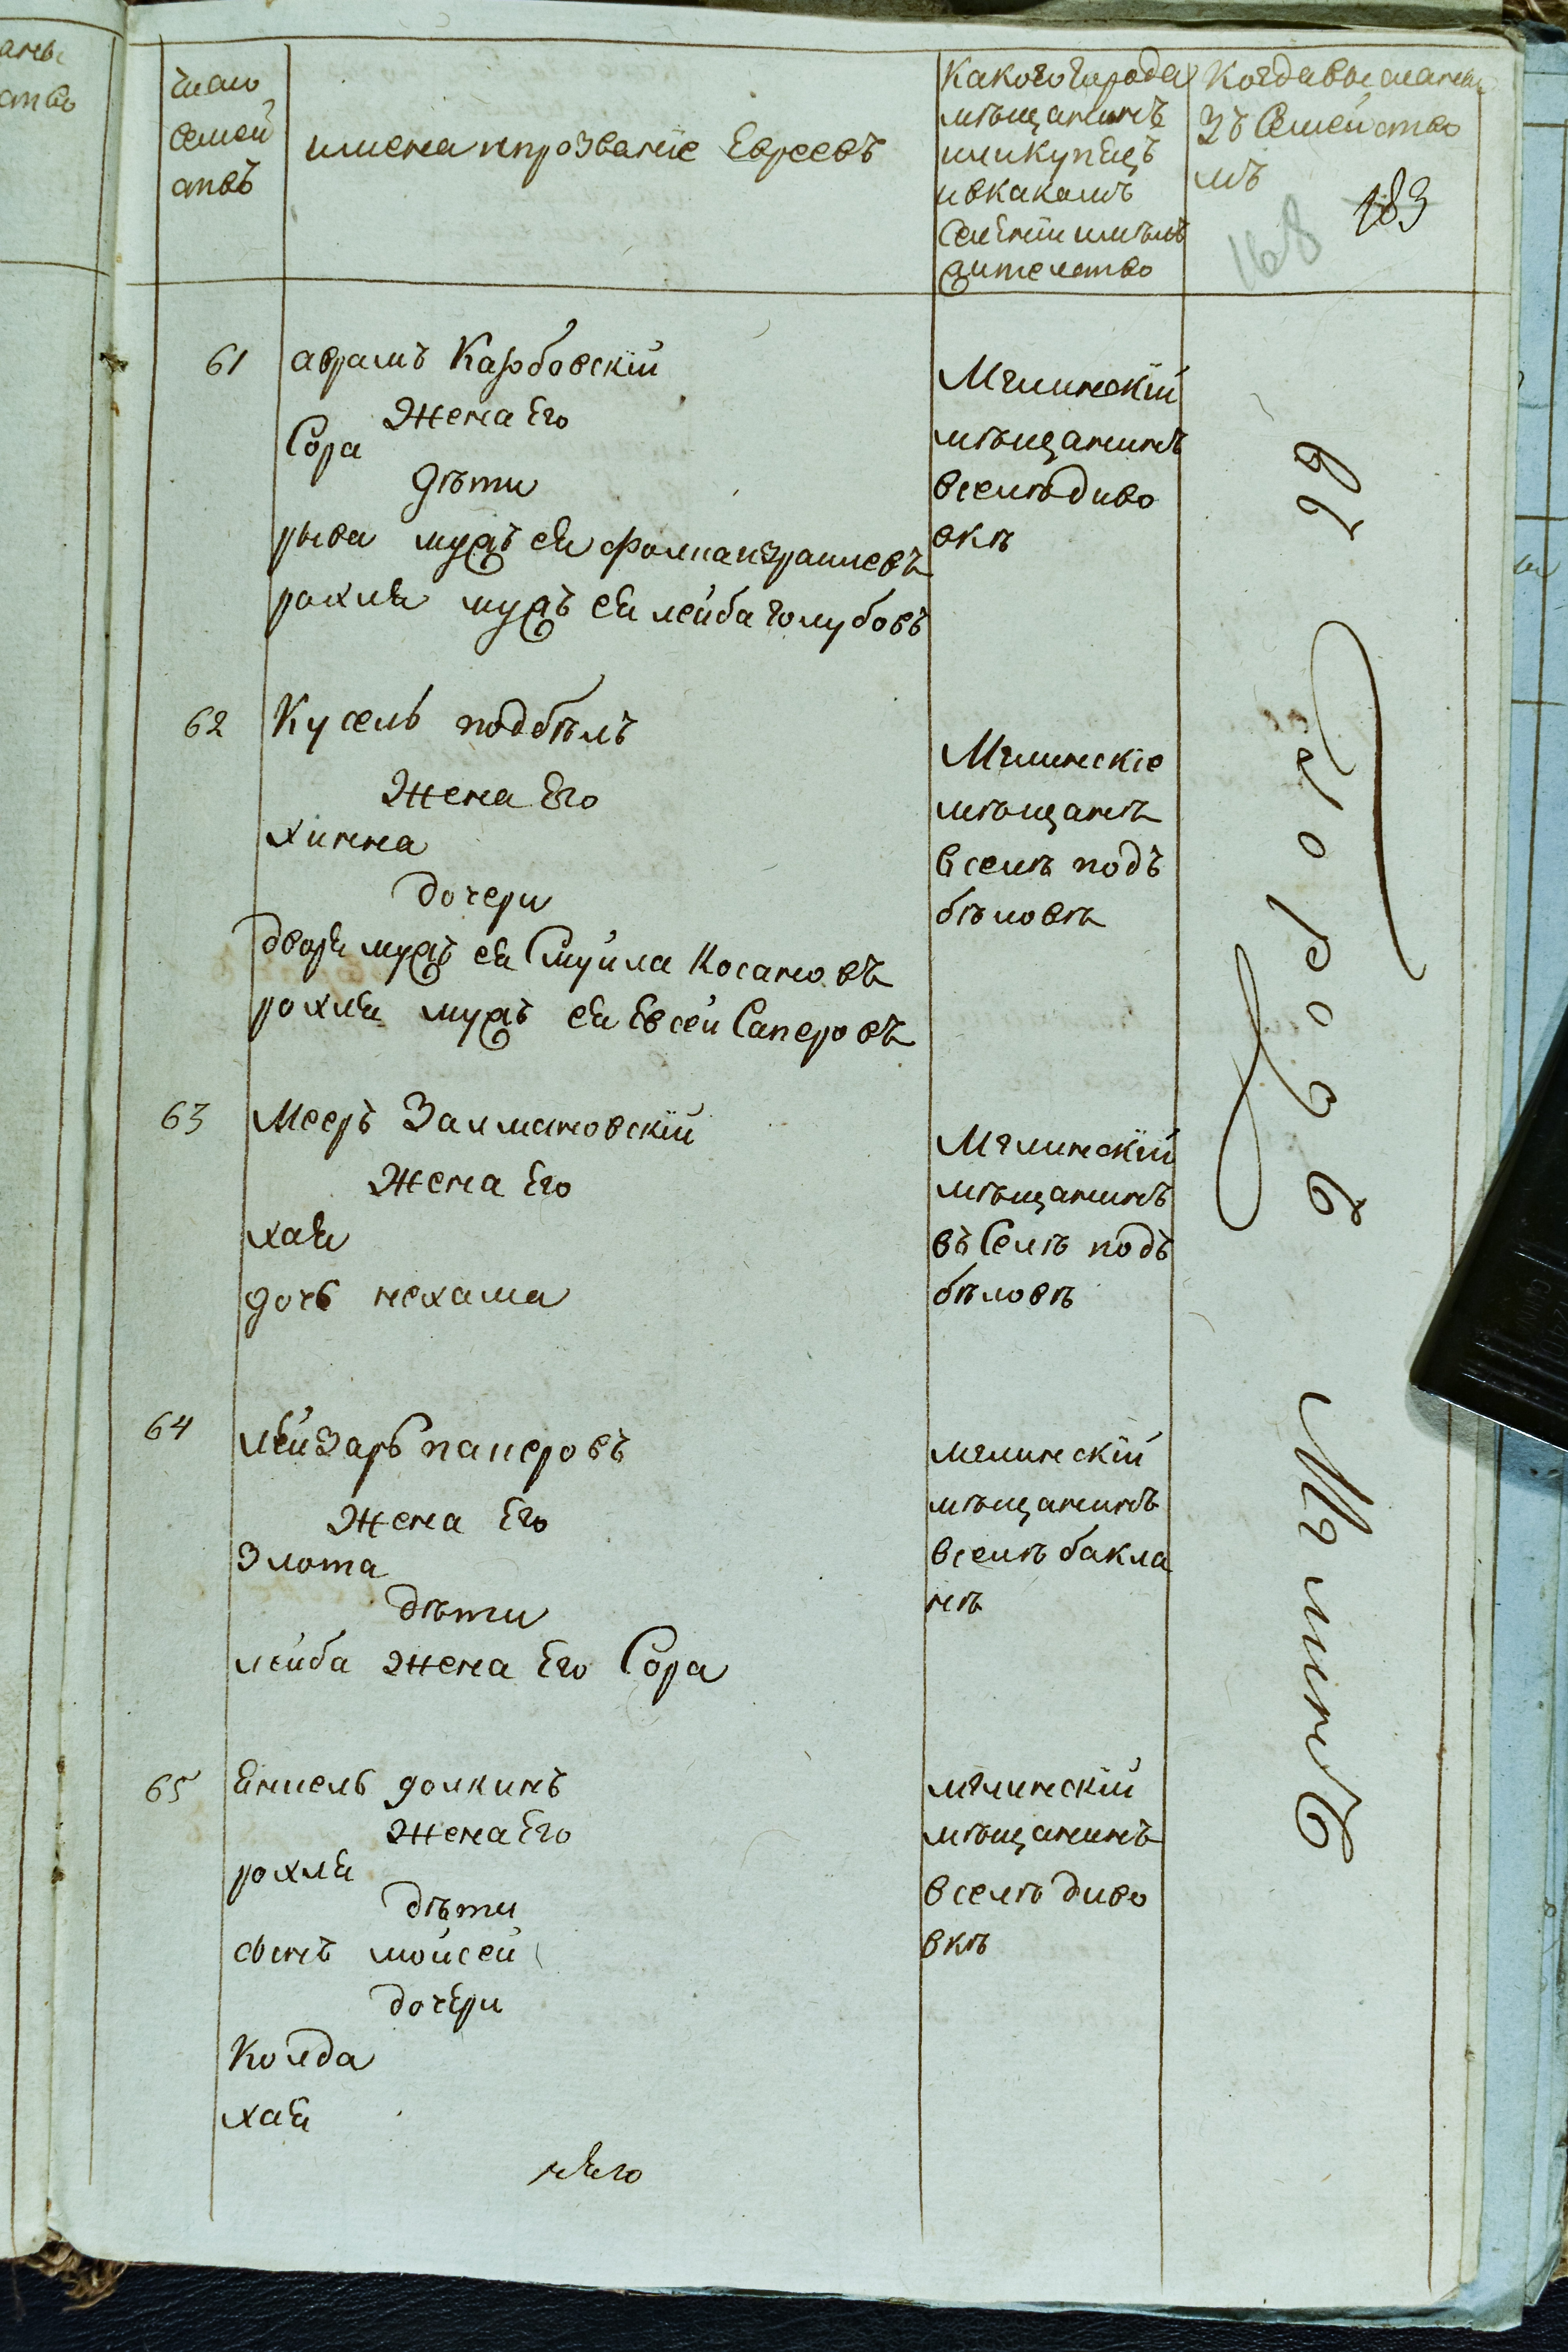 число
семей
ствъ
имена ипрозваніе Евреевъ
Какого города
мѣщанинъ
или купецъ
ивкакомъ
селеніи имѣлъ
жителство
Когда высланы
зъ Семейство
мъ
183
168
61
аврамъ Карбовскїй
Жена Его
Сора
дѣти
рыва мужъ ея фолка израилевъ
рохля мужъ ея лейба голубовъ
Мглинскїй
мѣщанинъ
вселѣ диво
вкѣ
62
Кусель подбѣлъ
Жена Его
хинна
дочери
дворя мужъ ея Смуйла Косановъ
рохля мужъ ея Евсей Саперовъ
Мглинскіе
мѣщанѣ
вселѣ подъ
бѣловѣ
63
Мееръ Залмановскїй
Жена Его
хая
дочь нехама
Мглинскїй
мѣщанинъ
въ Селѣ подъ
бѣловѣ
64
лейзарь паперовъ
Жена Его
Злота
дѣти
лейба Жена Его Сора
мглинскїй
мѣщанинъ
вселѣ бакла
нѣ
65
янкель долкинъ
Жена Его
рохля
дѣти
сынъ мойсей
дочери
Колда
хая
мглинскїй
мѣщанинъ
вселѣ диво
вкѣ
въ городъ Мглинъ